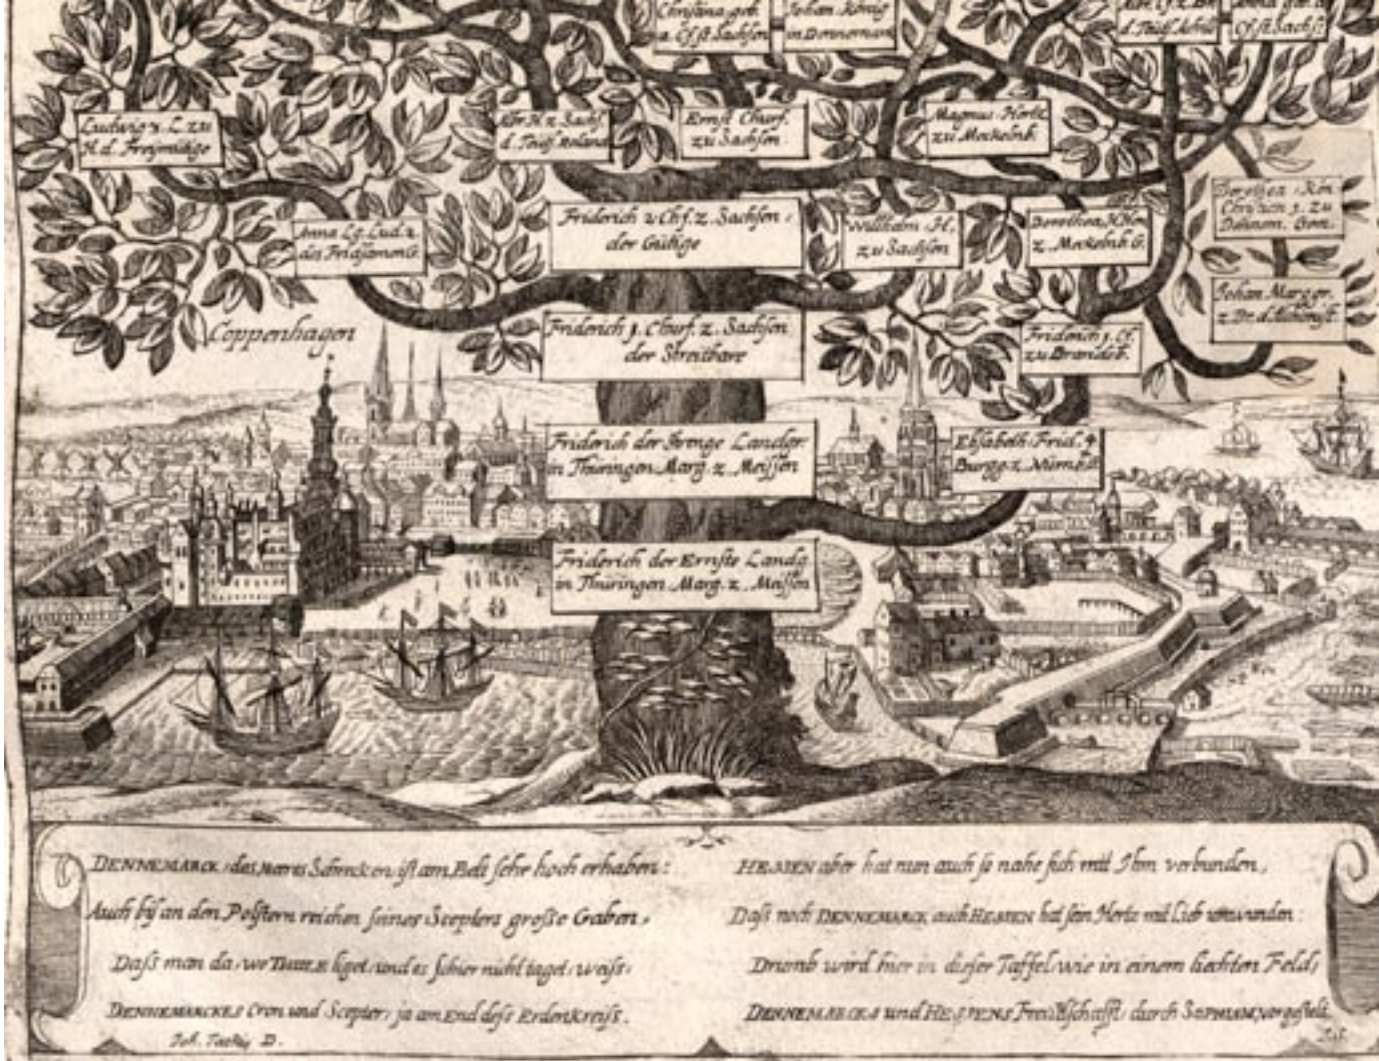 Christina geb.
a. Cf. st. Sachsen
Johan König
in Dennemarc
d. Teütf. Achill
Cf. st. Sachs.
Ludwig 2. L. zu
H. d. Freymütige
Albr. H. z. Sachs.
d. Teütf. Roland
Ernst Churf.
zu Sachsen.
Magnus Hertz.
zu Meckelnb.
Dorothea Kön.
Christian 1. zu
Dennem. Gem.
Anna Lg. Lud. 2
des Fridsamen G.
Friderich 2 Chf. z. Sachsen
der Gütige
Wilhelm H.
zu Sachsen
Dorothea, H. Hen
z. Meckelnb. G.
Johan Marggr.
z. Br. d. Alchimist.
Coppenhagen
Friderich 1. Churf. z. Sachsen
der Streitbare
Friderich 1. Cf.
zu Brandeb.
Friderich der Strenge Landgr.
in Thüringen Marg. z. Meissen
Elisabeth Frid. 4
Burgg. z. Nürnb. G.
Friderich der Ernste Landg.
in Thüringen Marg. z. Meissen
DENNEMARCK, des Mares Schrecken ist am Belt sehr hoch erhaben:
Auch biß an den Polstern reichen seines Scepters grosse Gaben,
Daß man da, wo THULE liget, und es schier nicht taget, weiß,
DENNEMARCKES Cron und Scepter, ja am End deß Erdenkreiß.
Joh. Tackij D.
HESSEN aber hat nun auch so nahe sich mit Ihm verbunden,
Daß noch DENNEMARCK auch HESSEN hat sein Hertz mit Lieb umwunden:
Drumb wird hier in dieser Taffel, wie in einem liechten Feld,
DENNEMARCKS und HESSENS Freündschafft, durch SOPHIAM, vorgestelt.